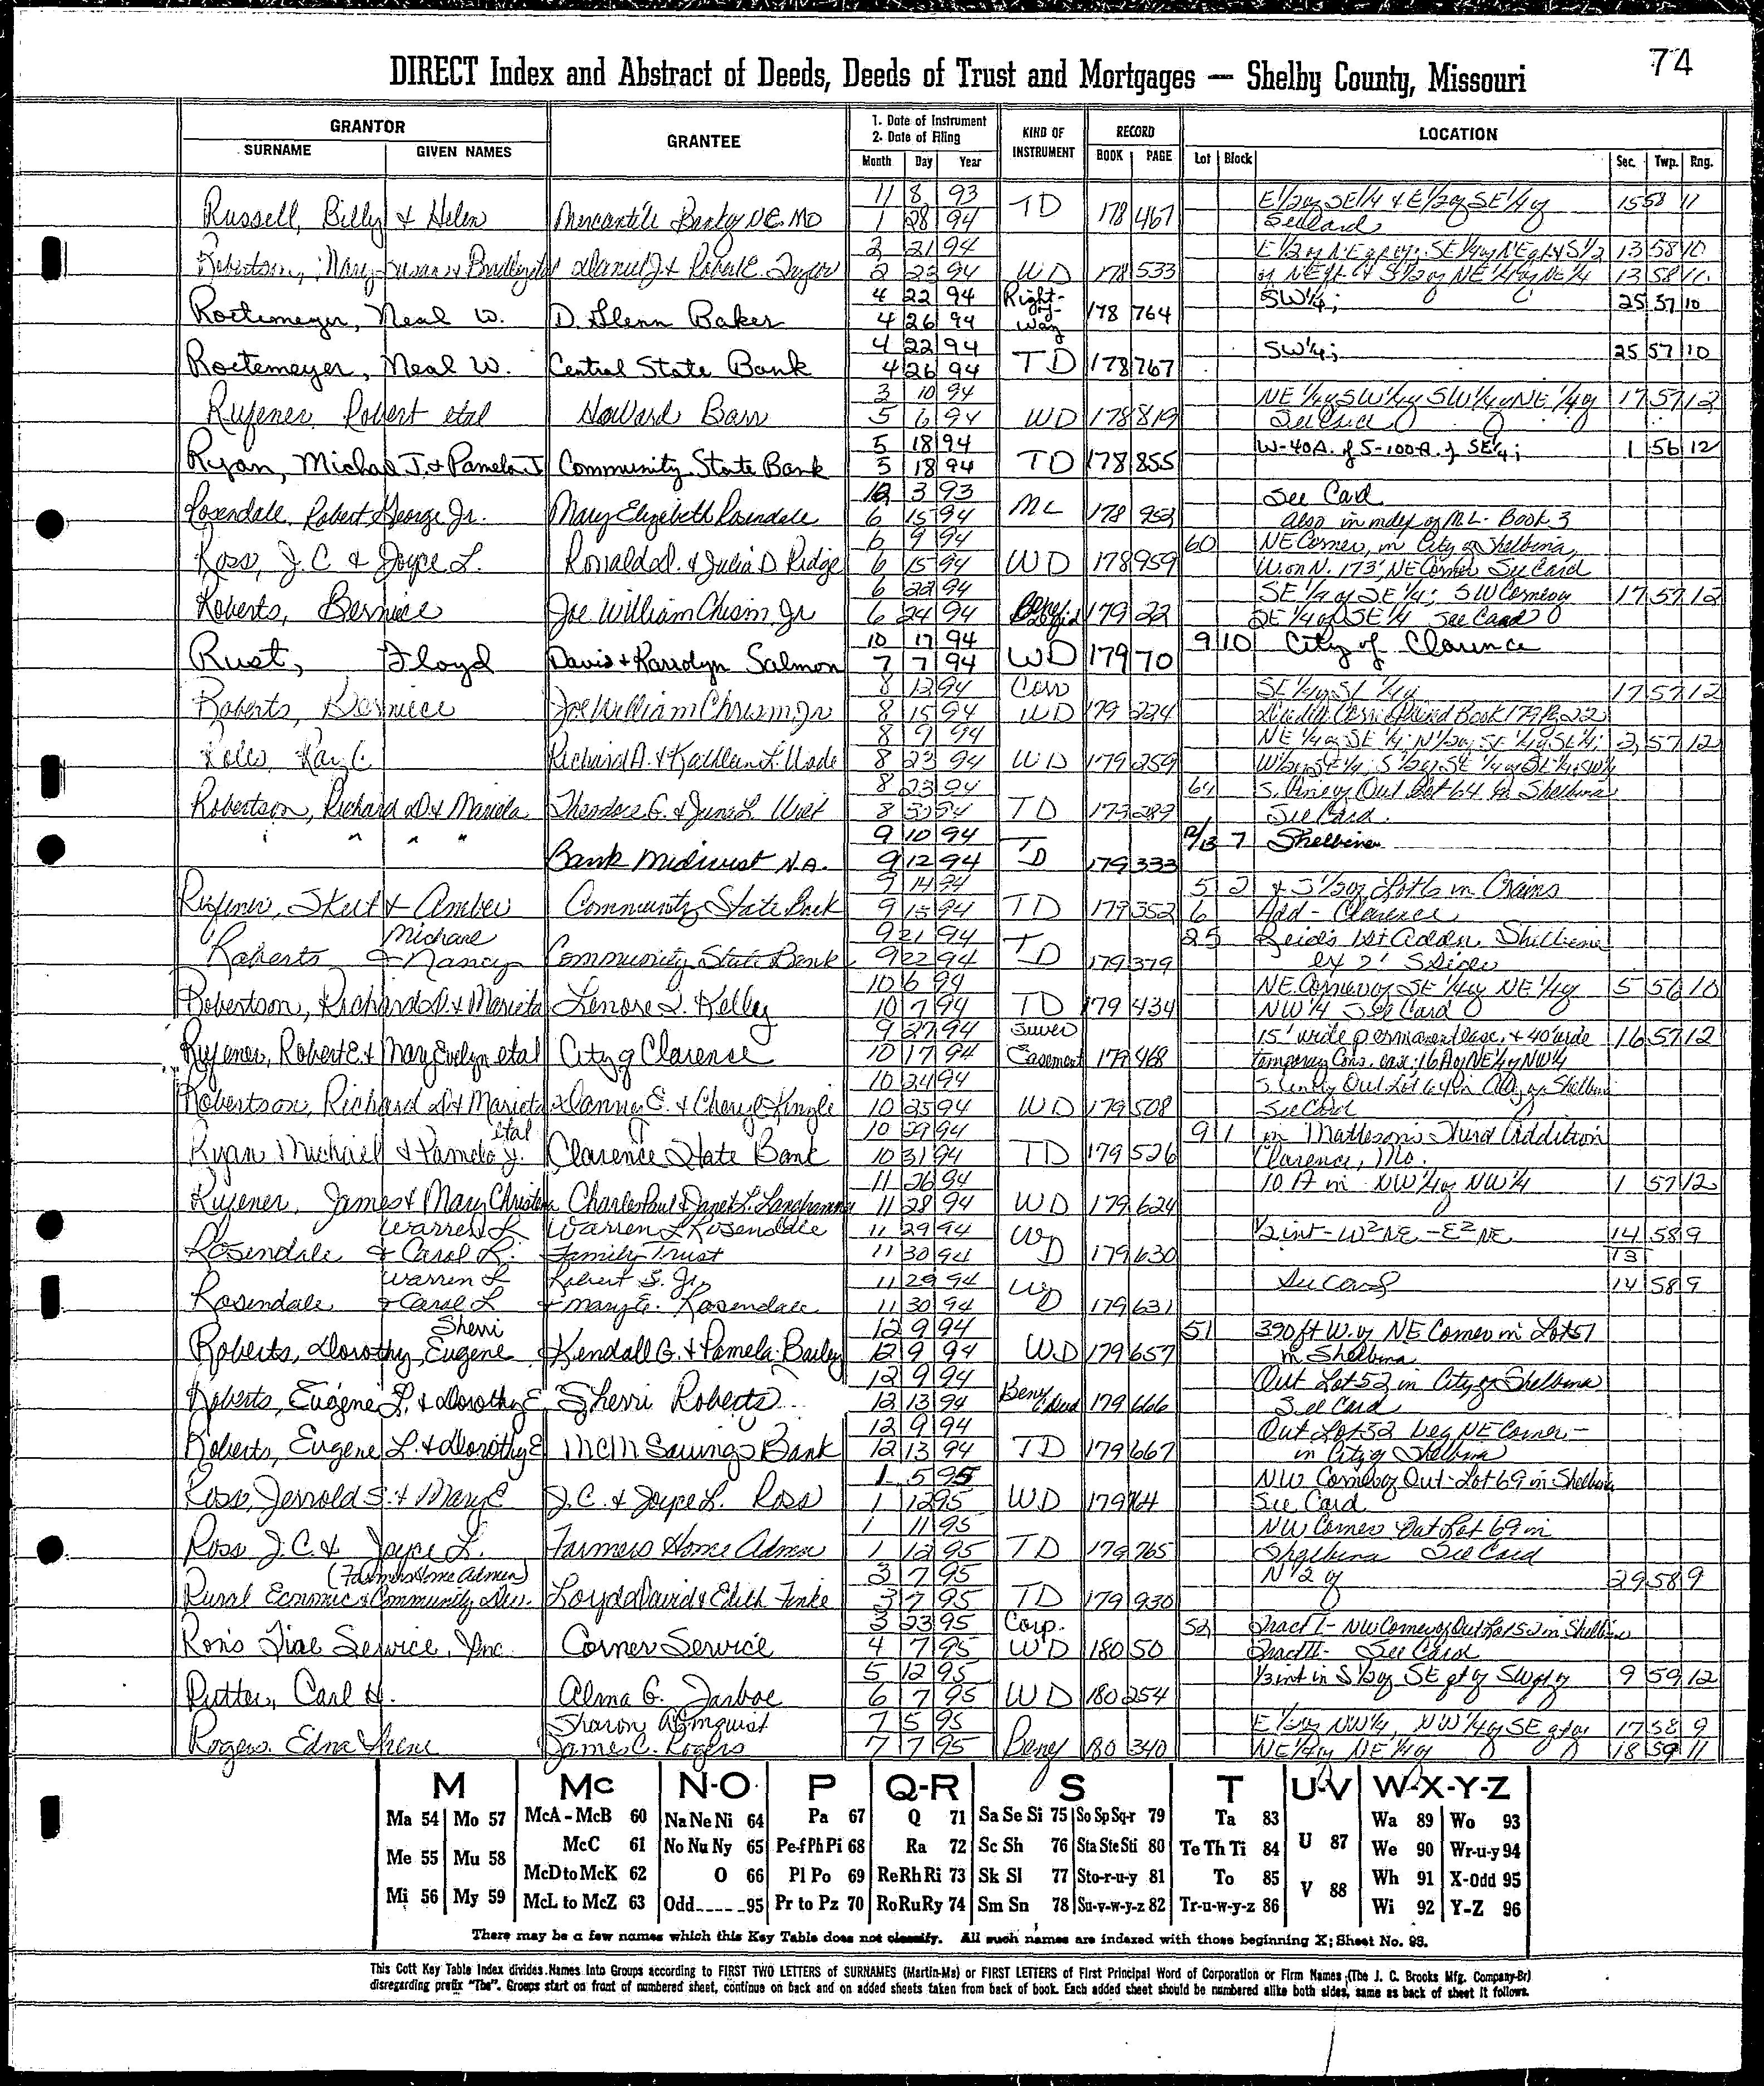 74
DIRECT Index and Abstract of Deeds, Deeds of Trust and Mortgages — Shelby County, Missouri
GRANTOR
SURNAME GIVEN NAMES
GRANTEE
1. Date of Instrument
2. Date of Filing
Month Day Year
KIND OF INSTRUMENT
RECORD
BOOK PAGE
LOCATION
Lot Block Sec. Twp. Rng.
11 8 93 E 1/2 of SE 1/4 & E 1/2 of SE 1/4 of 15 58 11
Russell, Billy & Helen Mercantile Bank of NE. MO 1 28 94 TD 178 467 See Card
2 21 94 13 58 10
Robertson, Mary Susan & Daniel J. & Robert C. Taylor 2 23 94 WD 178 533 13 58 11
4 22 94 Right-of-Way SW 1/4; 25 57 10
Roetemeyer, Neal W. D. Glenn Baker 4 26 94 178 764
4 22 94 SW 1/4; 25 57 10
Roetemeyer, Neal W. Central State Bank 4 26 94 TD 178 767
3 10 94 NE 1/4 of SW 1/4 of SW 1/4 of NE 1/4 of 17 57 12
Rufener, Robert etal Howard Barr 5 6 94 WD 178 819 See Card
5 18 94 W-40A. of S-100-A. of SE 1/4; 1 56 12
Ryan, Michael J. & Pamela J. Community State Bank 5 18 94 TD 178 855
12 3 93 See Card
Rosendale, Robert George Jr. Mary Elizabeth Rosendale 6 15 94 ML 178 953 also in index of M.L. Book 3
6 9 94 60 NE Corner, in City of Shelbina,
Ross, J.C. & Joyce L. Ronald D. & Julia D. Ridge 6 15 94 WD 178 959 W. on N. 173', NE Corner See Card
6 22 94 SE 1/4 of SE 1/4; SW Corner of 17 57 12
Roberts, Bernice Joe William Chism Jr 6 24 94 179 22 SE 1/4 of SE 1/4 See Card
10 17 94 9 10 City of Clarence
Rust, Floyd David & Karrolyn Salmon 7 7 94 WD 179 70
8 12 94 Corr SE 1/4 of SE 1/4 of 17 57 12
Roberts, Bernice Joe William Chism Jr 8 15 94 WD 179 224 Book 179 Pg 22
8 9 94 NE 1/4 of SE 1/4; N 1/2 of SE 1/4 of SE 1/4; 2 57 12
Ray C. Richard A. & Kathleen L. Wade 8 23 94 WD 179 259
8 23 94 64 S. line of Out Lot 64 in Shelbina
Robertson, Richard D. & Marieta Theodore G. & June L. 8 94 TD 179 289 See Card.
9 10 94 12/13 7 Shelbina
" " " Bank Midwest N.A. 9 12 94 TD 179 333
9 14 94 5 2 & S 1/2 of Lot 6 in Crains
Rufener, Skeet & Amber Community State Bank 9 15 94 TD 179 352 6 Add - Clarence
Michael 9 21 94 25 Reid's 1st Addn. Shelbina
Roberts & Nancy Community State Bank 9 22 94 TD 179 379 ex 2' S side
10 6 94 NE Corner of SE 1/4 of NE 1/4 of 5 56 10
Robertson, Richard D. & Marieta Lenore L. Kelley 10 7 94 TD 179 434 NW 1/4 See Card
9 27 94 Sewer 15' wide permanent ease. & 40' wide 16 57 12
Rufener, Robert E. & Mary Evelyn etal City of Clarence 10 17 94 Easement 179 468 temporary Cons. ease: 16 A of NE 1/4 of NW 1/4
10 24 94 S line of Out Lot 64 in City of Shelbina
Robertson, Richard D. & Marieta Danny E. & Cheryl 10 25 94 WD 179 508 See Card
etal 10 29 94 9 1 in Matteson's Third Addition
Ryan Michael & Pamela J. Clarence State Bank 10 31 94 TD 179 526 Clarence, Mo.
11 26 94 10 A in NW 1/4 of NW 1/4 1 57 12
Rufener, James & Mary Christena Charles Paul & Janet L. 11 28 94 WD 179 624
Warren L. Warren L Rosendale 11 29 94 1/2 int - W²NE - E²NE 14 58 9
Rosendale & Carol L. Family Trust 11 30 94 WD 179 630 13
Warren L Robert G. Jr. 11 29 94 See Card 14 58 9
Rosendale & Carol L & Mary E. Rosendale 11 30 94 WD 179 631
Sherri 12 9 94 51 390 ft W. of NE Corner in Lot 51
Roberts, Dorothy, Eugene & Kendall G. & Pamela Bailey 12 9 94 W.D 179 657 in Shelbina
12 9 94 Out Lot 52 in City of Shelbina
Roberts, Eugene L. & Dorothy E. Sherri Roberts 12 13 94 Beny Deed 179 666 See Card
12 9 94 Out Lot 52 beg NE Corner -
Roberts, Eugene L. & Dorothy E MCM Savings Bank 12 13 94 TD 179 667 in City of Shelbina
1 5 95 NW Corner of Out-Lot 69 in Shelbina
Ross, Jerrold S. & Mary E J.C. & Joyce L. Ross 1 12 95 WD 179 764 See Card
1 11 95 NW Corner Out Lot 69 in
Ross J.C. & Joyce L. Farmers Home Admn 1 12 95 TD 179 765 Shelbina See Card
(Farmers Home Admin) 3 7 95 N 1/2 of 29 58 9
Rural Economic & Community Dev. Loyd David & Edith Finke 3 7 95 TD 179 930
3 23 95 Corp. 52 Tract I - NW Corner of Out Lot 52 in Shelbina
Ron's Tire Service, Inc. Corner Service 4 7 95 WD 180 50 Tract II - See Card
5 12 95 1/3 int in S 1/2 of SE qt of SW qt of 9 59 12
Rutter, Carl H. Alma G. Jarboe 6 7 95 WD 180 254
Sharon Almquist 7 5 95 E 1/2 of NW 1/4, NW 1/4 of SE qt of 17 58 9
Rogers, Edna Irene James C. Rogers 7 7 95 Beny 180 340 NE 1/4 of NE 1/4 of 18 59 11
M Mc N-O P Q-R S T U-V W-X-Y-Z
Ma 54 Mo 57 McA - McB 60 Na Ne Ni 64 Pa 67 Q 71 Sa Se Si 75 So Sp Sq-r 79 Ta 83 U 87 Wa 89 Wo 93
Me 55 Mu 58 McC 61 No Nu Ny 65 Pe-f Ph Pi 68 Ra 72 Sc Sh 76 Sta Ste Sti 80 Te Th Ti 84 We 90 Wr-u-y 94
McD to McK 62 O 66 Pl Po 69 Re Rh Ri 73 Sk Sl 77 Sto-r-u-y 81 To 85 V 88 Wh 91 X-Odd 95
Mi 56 My 59 McL to McZ 63 Odd 95 Pr to Pz 70 Ro Ru Ry 74 Sm Sn 78 Su-v-w-y-z 82 Tr-u-w-y-z 86 Wi 92 Y-Z 96
There may be a few names which this Key Table does not classify. All such names are indexed with those beginning X; Sheet No. 95.
This Cott Key Table Index divides Names into Groups according to FIRST TWO LETTERS of SURNAMES (Martin-Ma) or FIRST LETTERS of First Principal Word of Corporation or Firm Names (The J. C. Brooks Mfg. Company-Br)
disregarding prefix "The". Groups start on front of numbered sheet, continue on back and on added sheets taken from back of book. Each added sheet should be numbered alike both sides, same as back of sheet it follows.